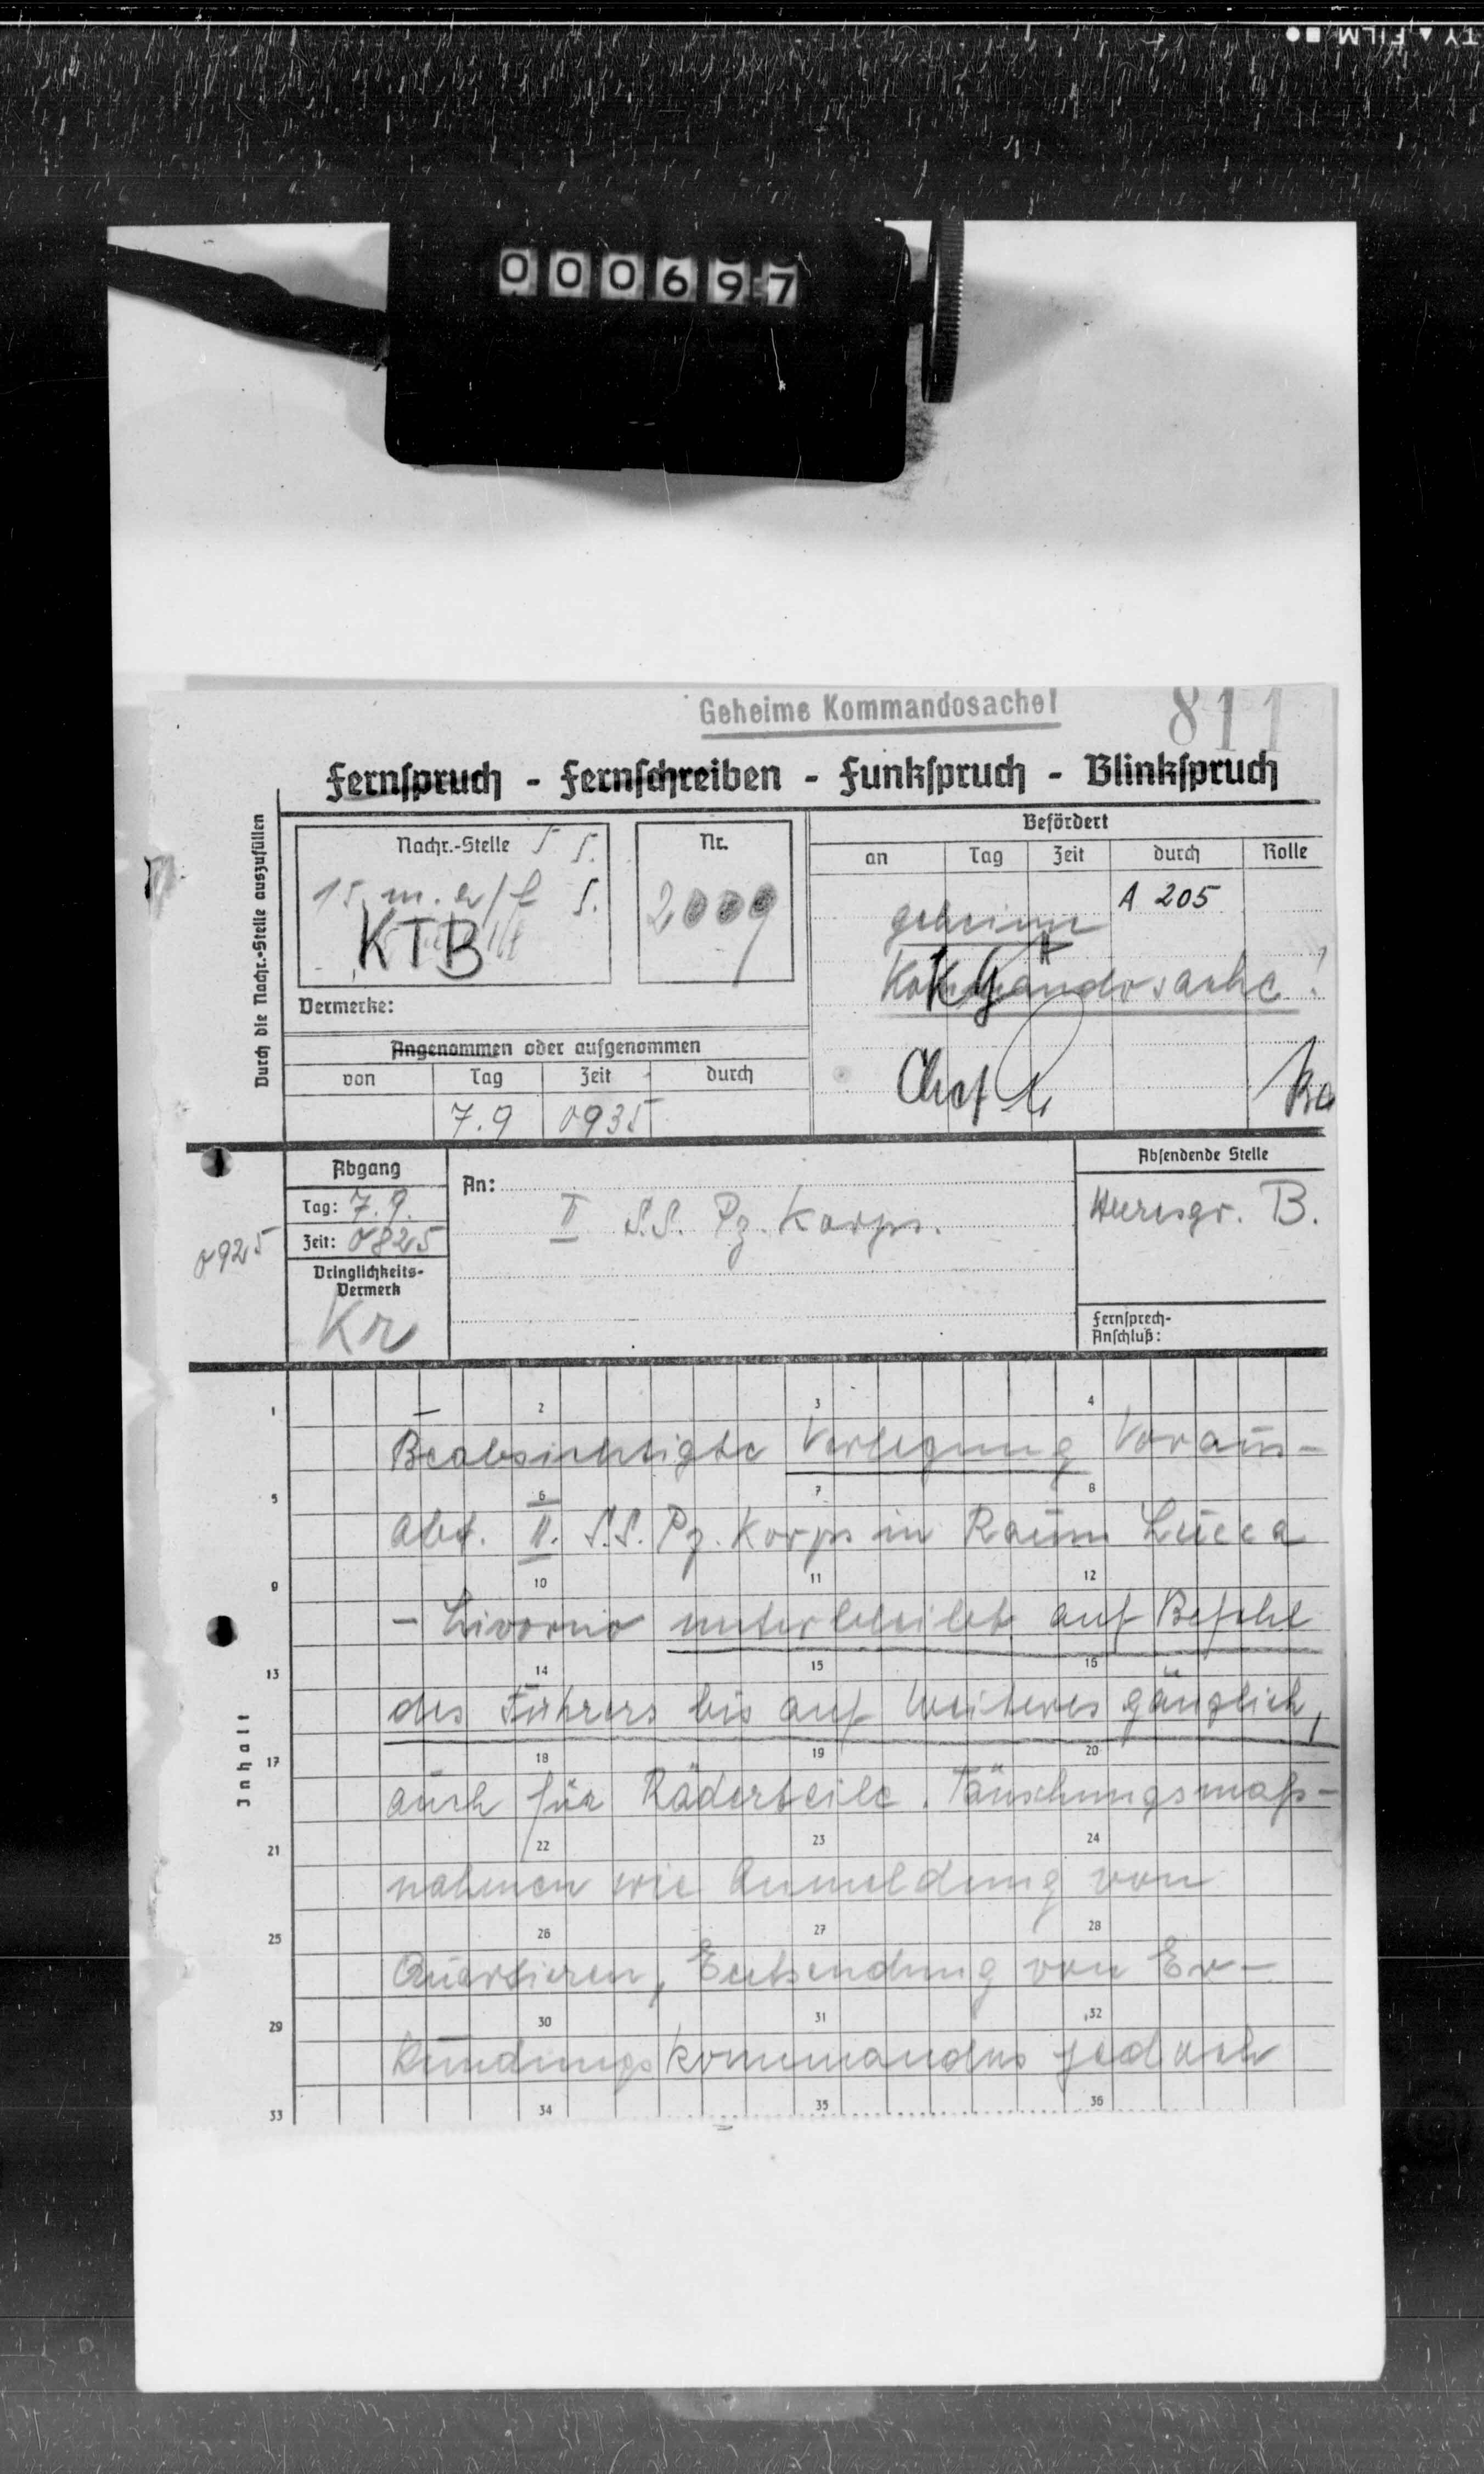 TY ▲ FILM ■ ●
000697
Geheime Kommandosache!
811
Fernspruch - Fernschreiben - Funkspruch - Blinkspruch
Durch die Nachr.-Stelle auszufüllen
Nachr.-Stelle
KTB
Nr.
2009
Vermerke:
Angenommen oder aufgenommen
von Tag Zeit durch
7.9 0935
Befördert
an Tag Zeit durch Rolle
A 205
geheime
Kommandosache!
Chef
Abgang
Tag: 7.9.
Zeit: 0825
0925
Dringlichkeits-
Vermerk
Kr
An:
II S.S. Pz. Korps.
Absendende Stelle
Heeresgr. B.
Fernsprech-
Anschluß:
Inhalt
1 2 3 4
Beabsichtigte Verlegung Voraus-
5 6 7 8
abt. II. S.S. Pz. Korps in Raum Lucca
9 10 11 12
- Livorno unterbleibt auf Befehl
13 14 15 16
des Führers bis auf weiteres gänzlich,
17 18 19 20
auch für Räderteile. Täuschungsmaß-
21 22 23 24
nahmen wie Anmeldung von
25 26 27 28
Quartieren, Entsendung von Er-
29 30 31 32
kundungskommandos jedoch
33 34 35 36